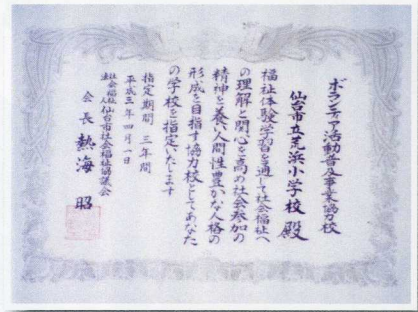 ボランティア活動普及事業協力校
仙台市立荒浜小学校 殿
福祉体験学習を通して社会福祉へ
の理解と関心を高め社会参加の
精神を養い人間性豊かな人格の
形成を目指す協力校としてあなた
の学校を指定いたします
指定期間 三年間
平成三年四月一日
社会福祉法人仙台市社会福祉協議会
会長 熱海 昭